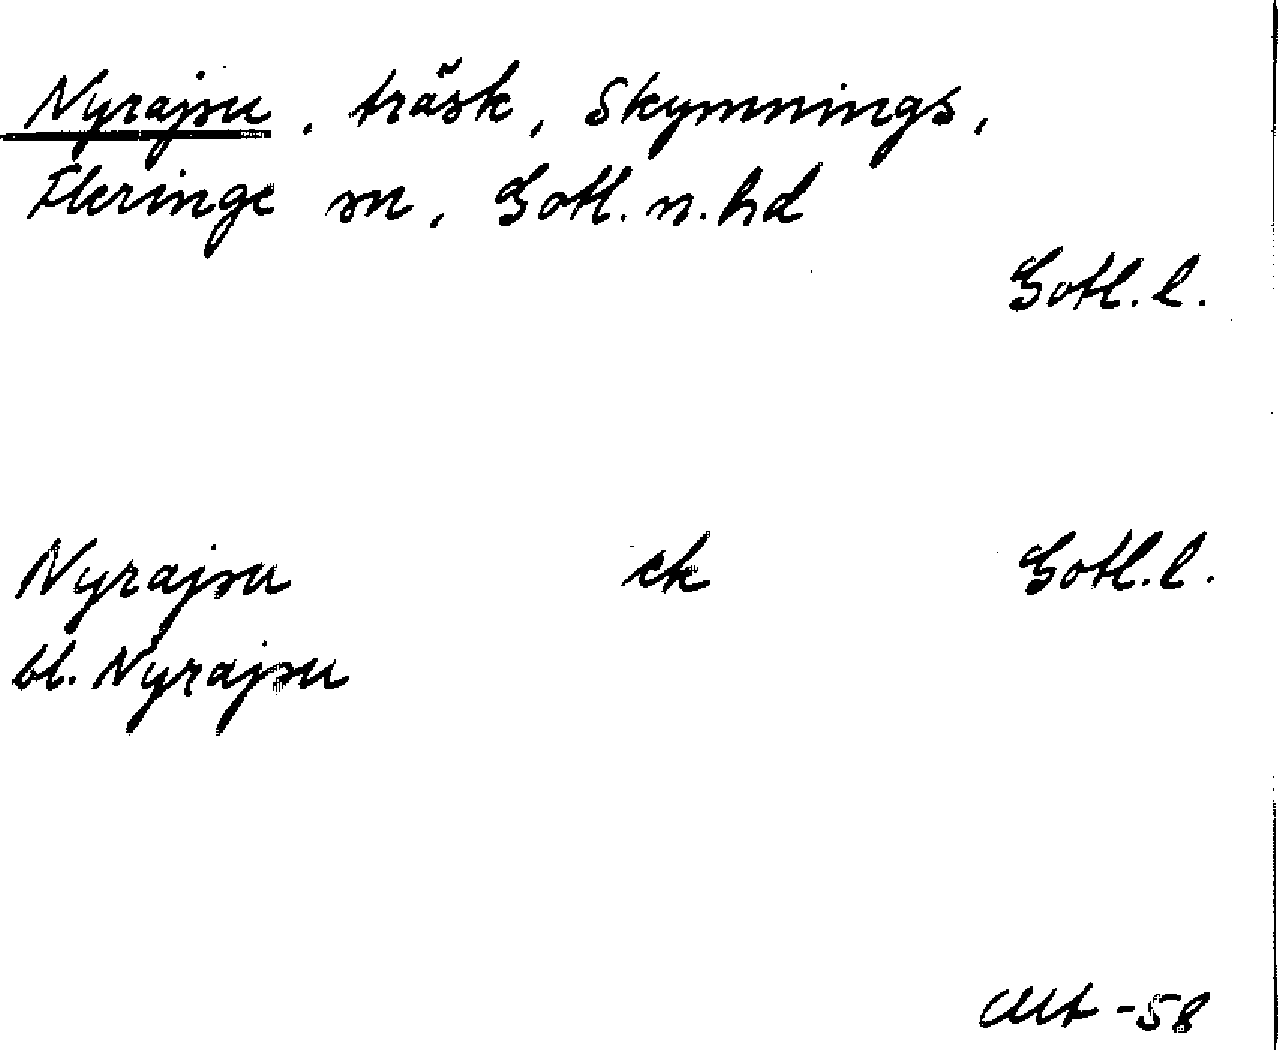 Nyrajsu, träsk, Skymnings,
Fleringe sn, Gotl. n. hd
Gotl. l.
Nyrajsu ek Gotl. l.
bl. Nyrajsu
-58